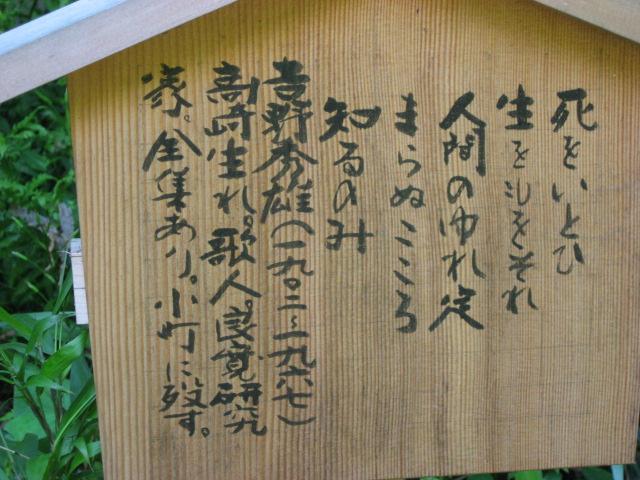 死をいとひ
生をもをそれ
人間のゆれ定
まらぬこころ
知るのみ
吉野秀雄(一九〇二〜一九六七)
高崎生れ。歌人。良寛研究
家。全集あり。小町に歿す。